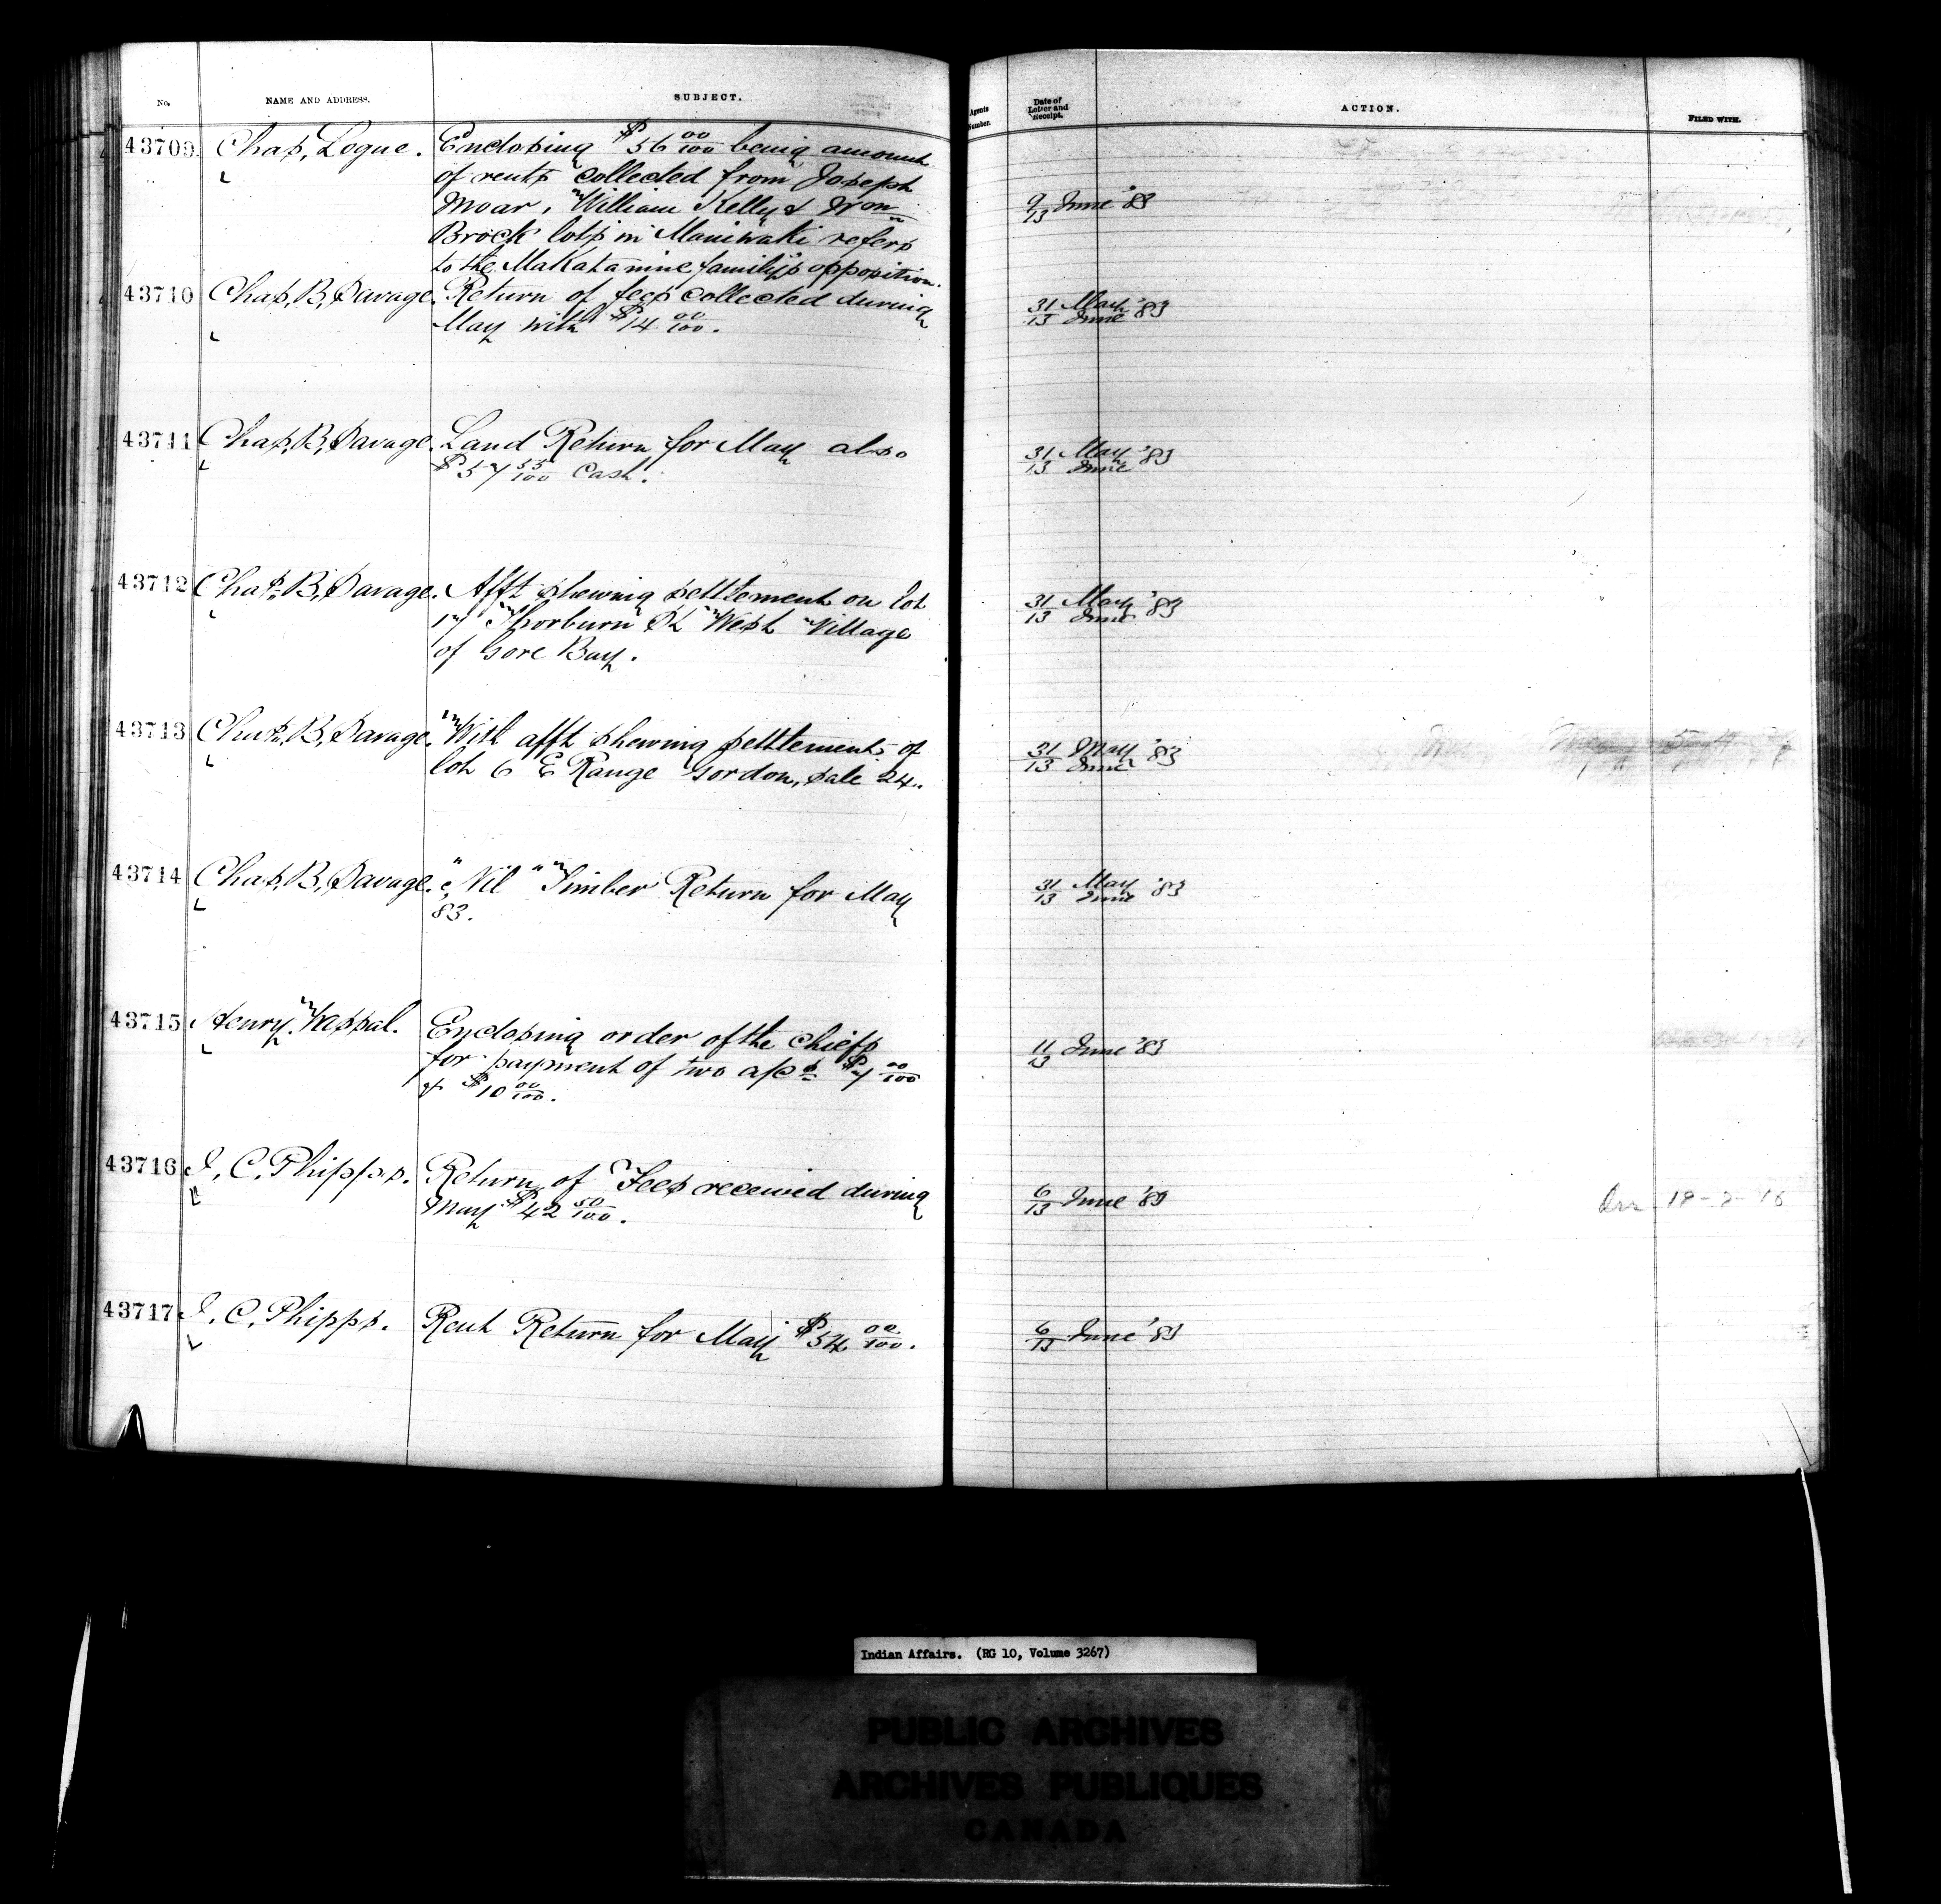 No. NAME AND ADDRESS. SUBJECT. Agents Number. Date of Letter and Receipt. ACTION. FILED WITH.
43709. Chas, Logue. Enclosing $56 00/100 being amount
of rents collected from Joseph
Moar, William Kelly & Wm 9/13 June '83
Brock lots in Maniwaki refers
to the Makatanine family's opposition.
43710 Chas, B, Savage. Return of fees collected during 31 May / 13 June '83
May with $14 00/100.
43711 Chas, B, Savage. Land Return for May also 31 May / 13 June '83
$57 55/100 Cash.
43712 Chas, B, Savage. Afft shewing settlement on lot 31 May / 13 June '83
17 Thorburn St West Village
of Gore Bay.
43713 Chas, B, Savage. With afft shewing settlement of 31 May / 13 June '83
lot 6 E Range Gordon, sale 24.
43714 Chas, B, Savage. "Nil" Timber Return for May 31 May / 13 June '83
83.
43715 Henry Wassal. Enclosing order of the Chiefs 11/13 June '83
for payment of two a/cs $7 00/100
& $10 00/100.
43716 J, C, Phipps. Return of Fees received during 6/13 June '83
May $42 50/100.
43717 J, C, Phipps. Rent Return for May $54 00/100. 6/13 June '83
Indian Affairs. (RG 10, Volume 3267)
PUBLIC ARCHIVES
ARCHIVES PUBLIQUES
CANADA